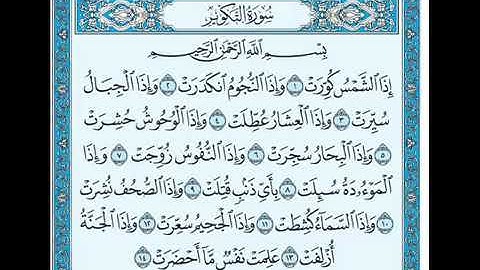 سُورَةُ التَّكْوِيرِ
بِسْمِ اللَّهِ الرَّحْمَٰنِ الرَّحِيمِ
إِذَا الشَّمْسُ كُوِّرَتْ ١ وَإِذَا النُّجُومُ انكَدَرَتْ ٢ وَإِذَا الْجِبَالُ
سُيِّرَتْ ٣ وَإِذَا الْعِشَارُ عُطِّلَتْ ٤ وَإِذَا الْوُحُوشُ حُشِرَتْ
٥ وَإِذَا الْبِحَارُ سُجِّرَتْ ٦ وَإِذَا النُّفُوسُ زُوِّجَتْ ٧ وَإِذَا
الْمَوْءُۥدَةُ سُئِلَتْ ٨ بِأَيِّ ذَنۢبٍ قُتِلَتْ ٩ وَإِذَا الصُّحُفُ نُشِرَتْ
١٠ وَإِذَا السَّمَآءُ كُشِطَتْ ١١ وَإِذَا الْجَحِيمُ سُعِّرَتْ ١٢ وَإِذَا الْجَنَّةُ
أُزْلِفَتْ ١٣ عَلِمَتْ نَفْسٌ مَّآ أَحْضَرَتْ ١٤